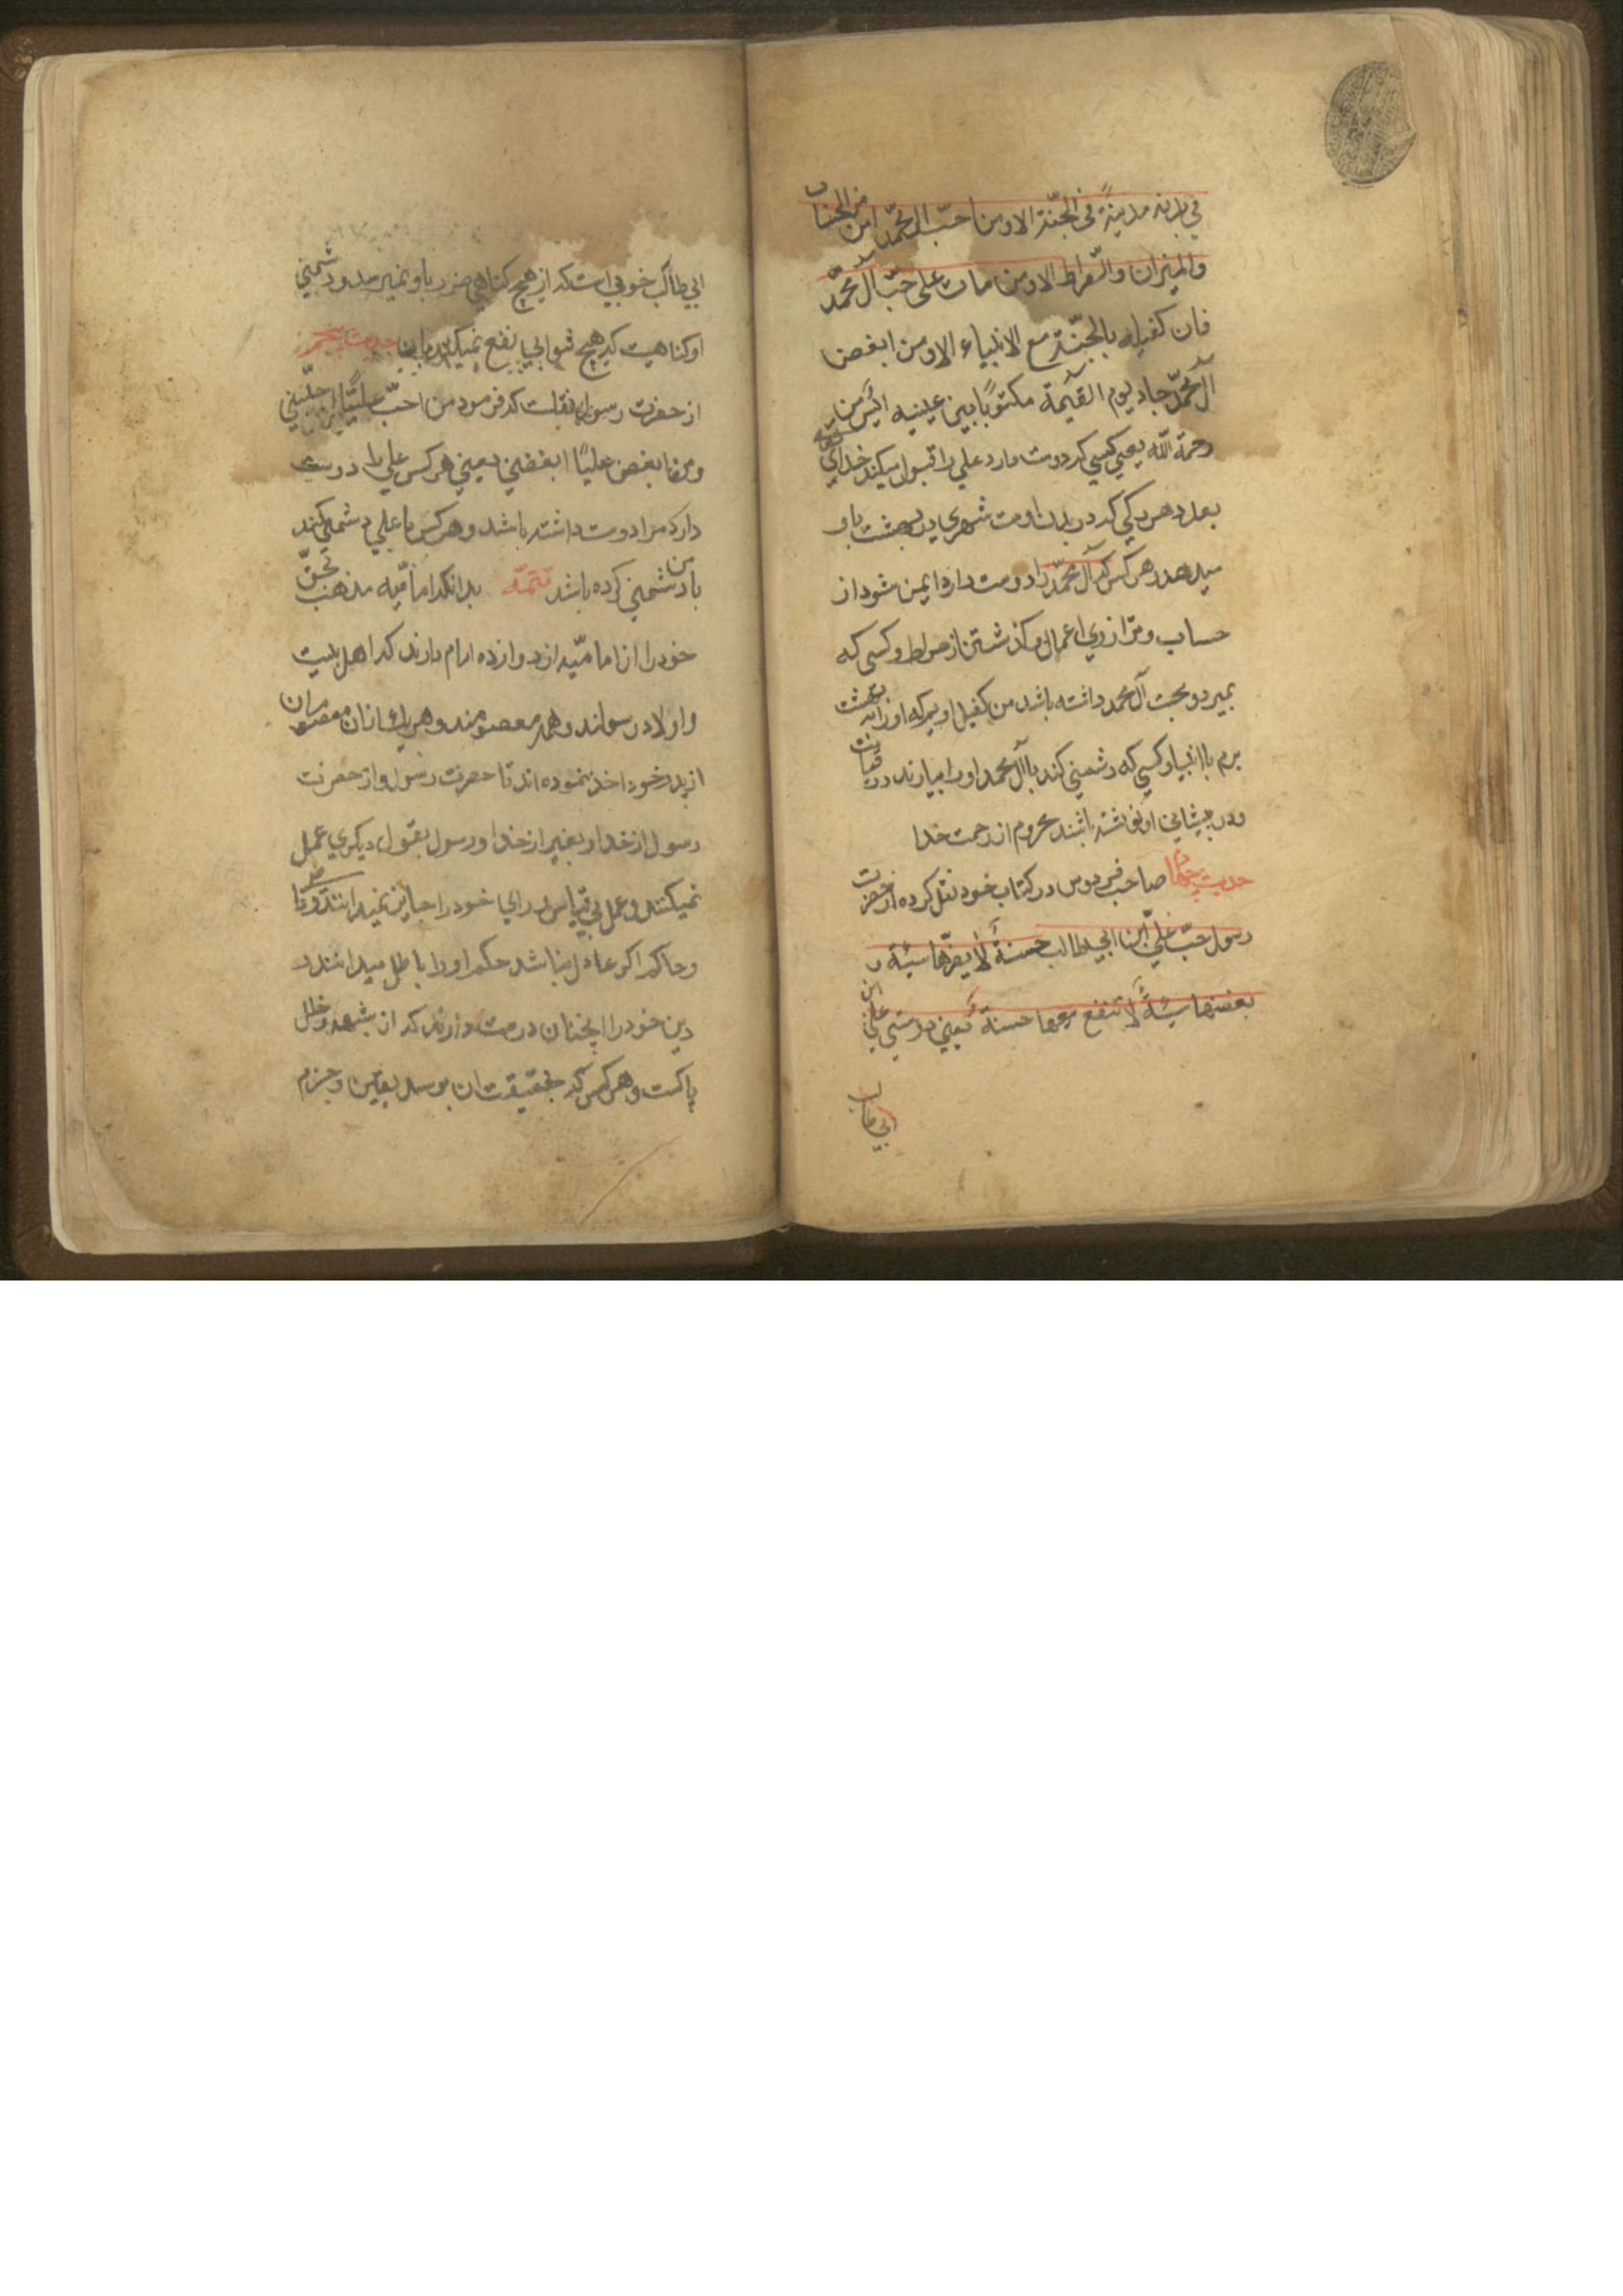 في بدنه مدينة في الجنّة الا ومن احبّ آل محمّد امن من الحساب
والميزان والصّراط الا ومن مات على حبّ آل محمّد
فان كفيله بالجنّة مع الانبياء الا ومن ابغض
آل محمّد جاء يوم القيمة مكتوبًا بين عينيه آيس من
رحمة الله يعني كسي كه دوست دارد علي را قبول ميكند خداي تعالى
بعدد هر ركي كه در بدن اوست شهري در بهشت باو
ميدهد و هر كس كه آل محمّد را دوست دارد ايمن شود از
حساب و ترازوي اعمال و كذشتن از صراط و كسي كه
بميرد و محبت آل محمد داشته باشد من كفيل اويم كه او را به بهشت
برم با انبيا و كسي كه دشمني كند باآل محمد او را بيارند در قيامت
و در پيشاني او نوشته باشند محروم از رحمت خدا
حديث چهارم صاحب فردوس در كتاب خود نقل كرده از حضرت
رسول حبّ عليّ ابن ابيطالب حسنةٌ لا يضرّها سيّئة و
بغضها سيّئةٌ لا تنفع معها حسنة يعني دوستي علي ابن
ابي طالب
ابي طالب خوبي است كه از هيچ كناهي ضرر باو نميرسد و دشمني
او كناهيست كه هيچ ثوابي نفع نميكند با اينها حديث پنجم
از حضرت رسول نقلست كه فرمود من احبّ عليًّا احبّني
ومن ابغض عليًا ابغضني يعني هر كس علي را دوست
دارد مرا دوست داشته باشد و هر كس با علي دشمني كند
با من دشمني كرده باشد تتمّه بدانكه اماميّه مذهب بحقّ
خود را از اماميّه از دوازده امام دارند كه اهل بيت
و اولاد رسولند و همه معصومند و هر يك از ان معصومان
از پدر خود اخذ نموده اند تا حضرت رسول و از حضرت
رسول از خدا و بغير از خدا و رسول بقول ديكري عمل
نميكنند و عمل بي قياس و راي خود را جايز نميدانند و قاضي
و حاكم اكر عادل نباشد حكم او را باطل ميدانند و
دين خود را انچنان درست دارند كه از شبهه و خلل
پاكست و هر كس كه بحقيقت ان برسد بيقين و جزم